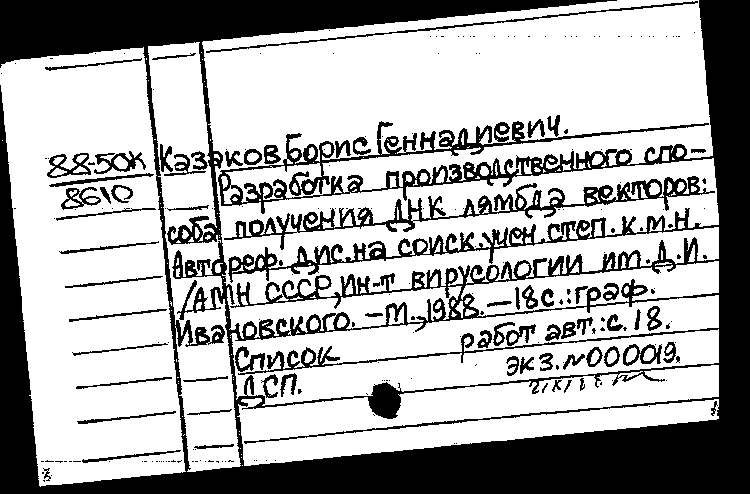 88-50К Казаков, Борис Геннадиевич.
8610 Разработка производственного спо-
соба получения ДНК лямбда векторов:
Автореф. дис. на соиск. учен. степ. к.м.н.
/АМН СССР, Ин-т вирусологии им. Д.И.
Ивановского. – М., 1988. – 18 с.: граф.
Список работ авт.: с. 18.
ДСП. экз. №000019.